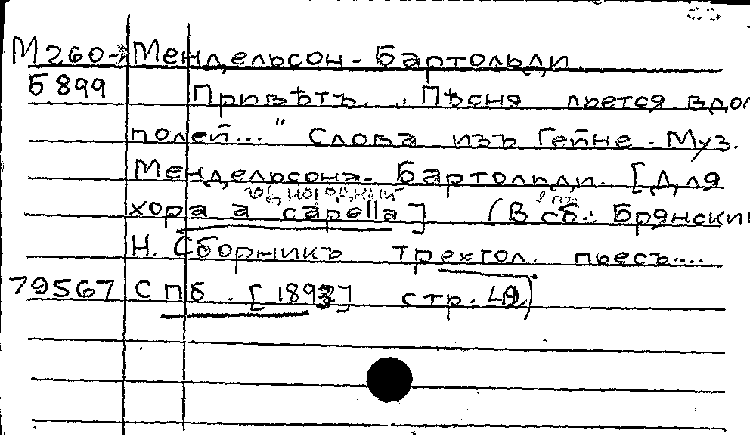 М260-
Б899
Мендельсон-Бартольди
Привѣтъ. „Пѣсня льется вдол
полей...." Слова изъ Гейне. Муз.
Мендельсона-Бартольди. [Для
хора a capella] (В сб.: Брянский
Н. Сборникъ трехгол. пьесъ....
79567 Спб. [189 ] стр.